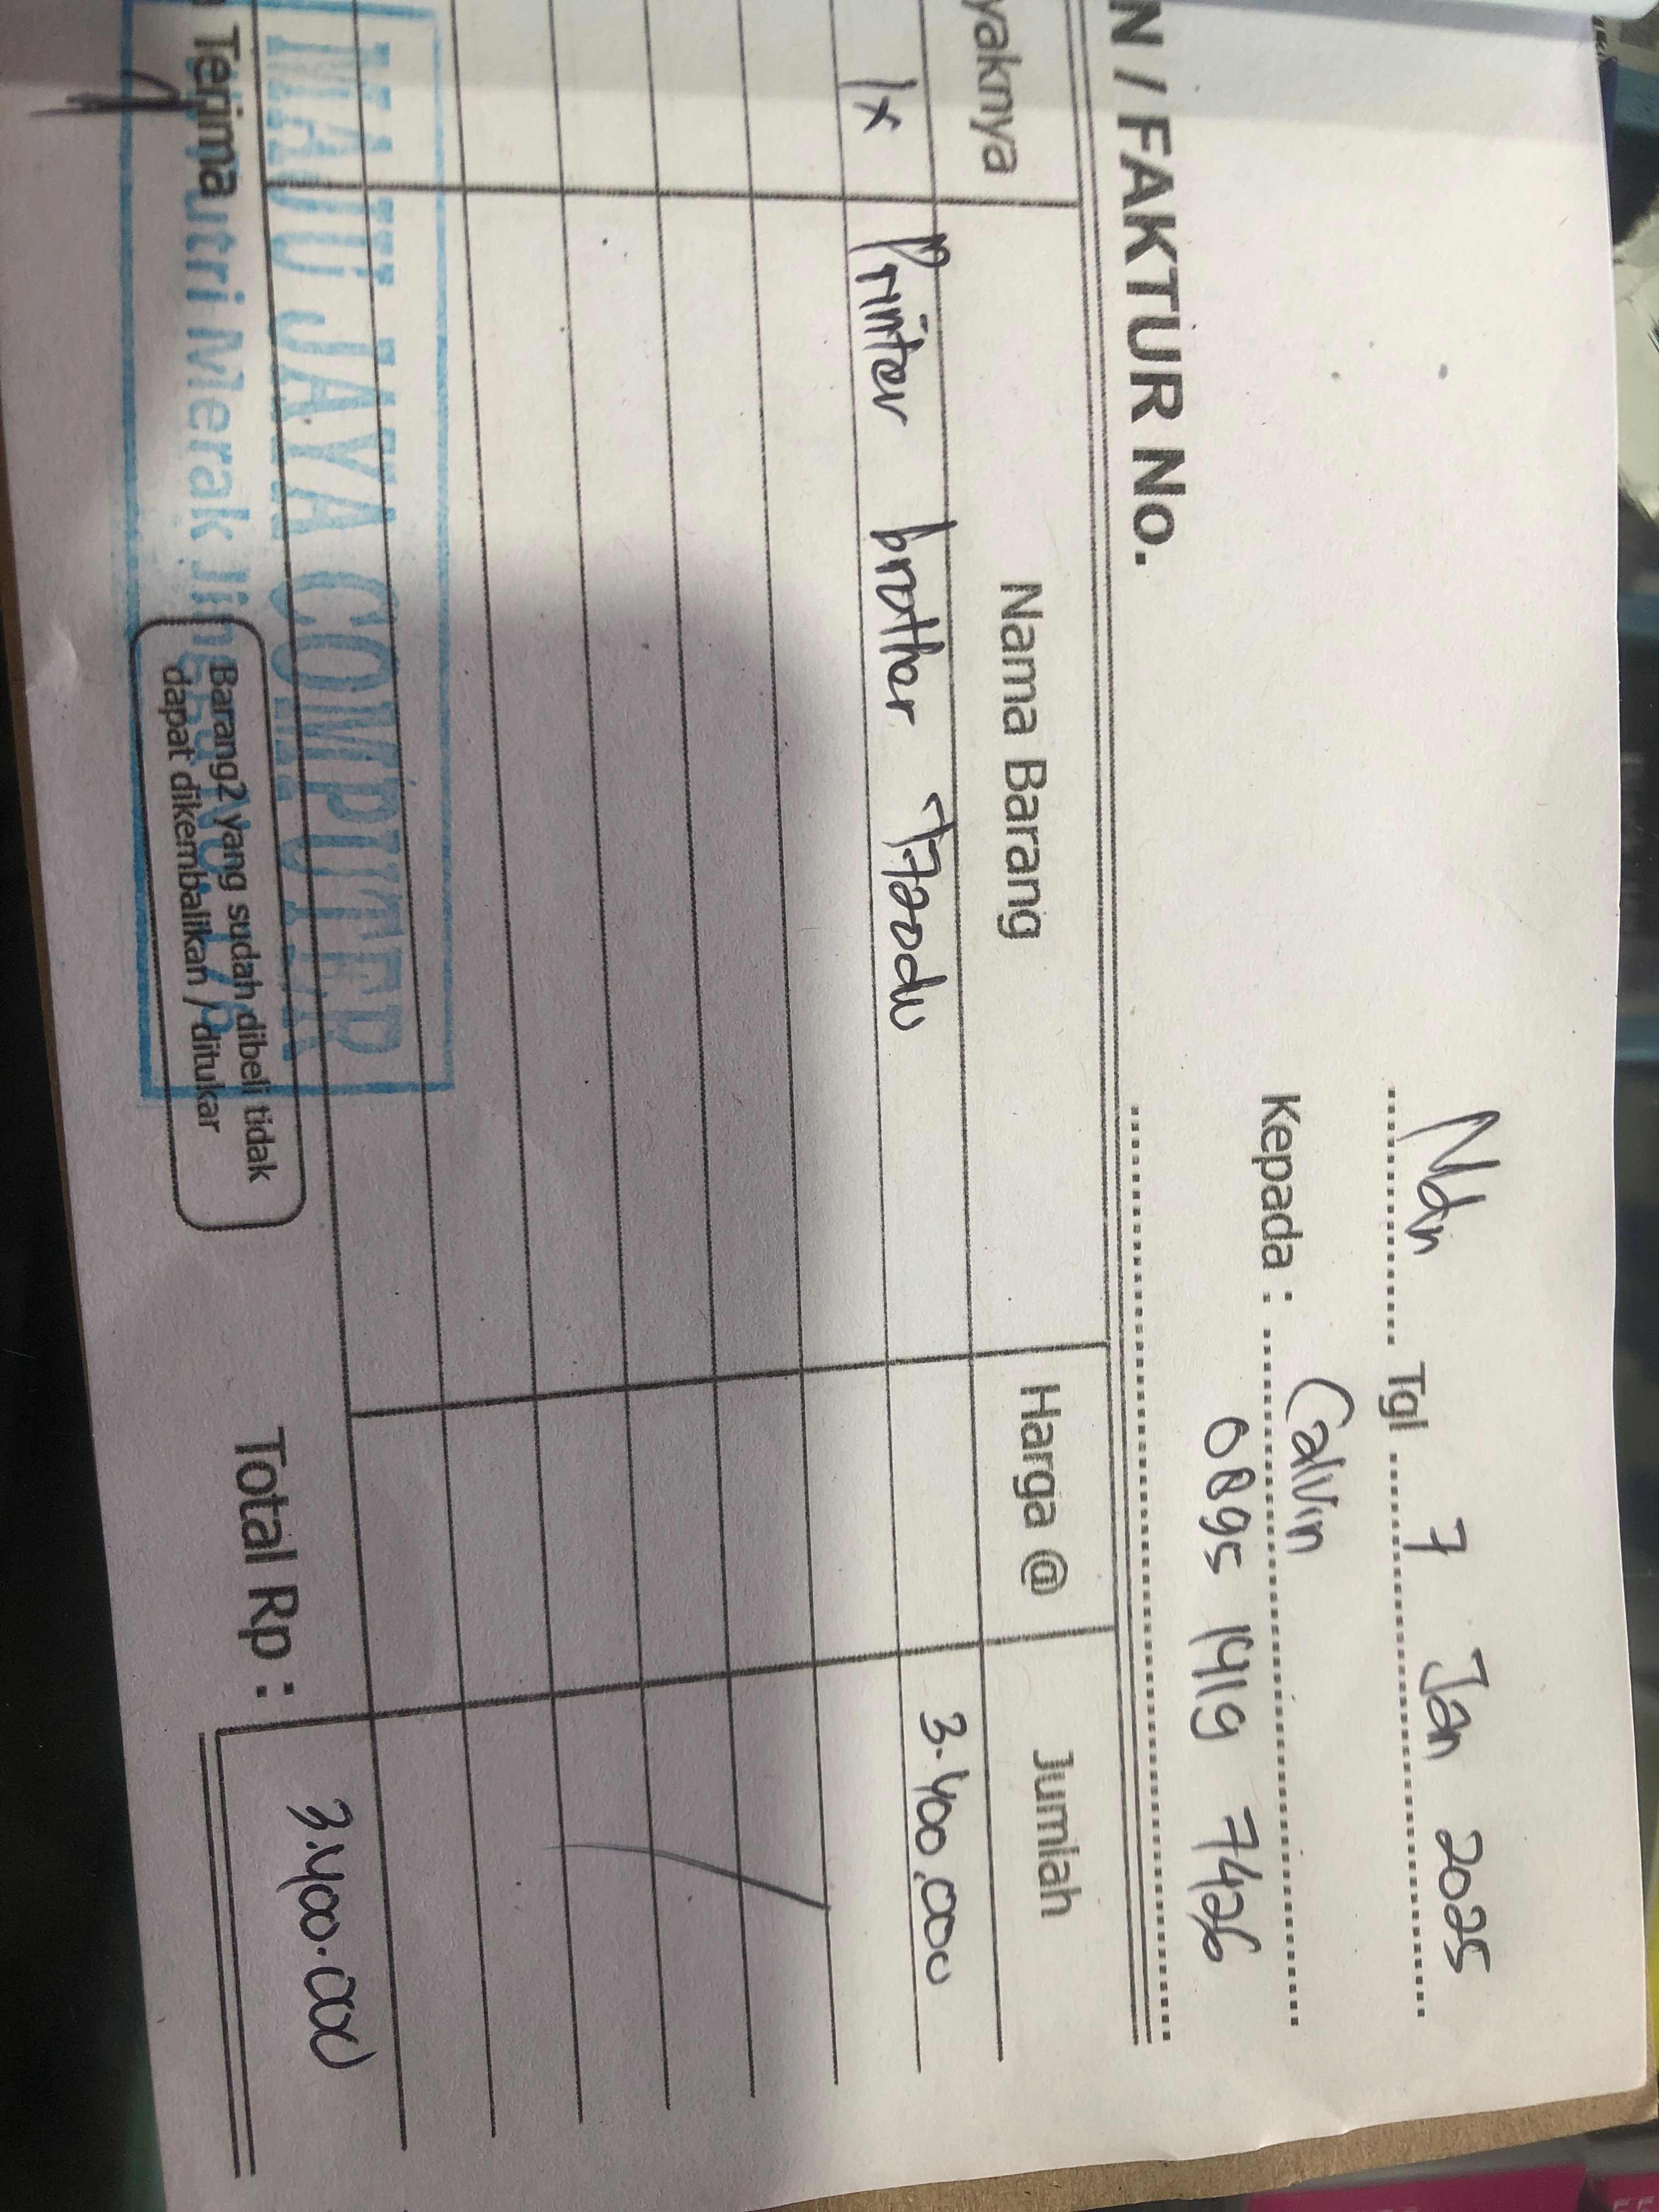 Mdn Tgl 7 Jan 2025
Kepada : Calvin
0895 1419 7426
N / FAKTUR No.
yaknya Nama Barang Harga @ Jumlah
1x Printer brother T720dw 3.400.000
MAJU JAYA COMPUTER
Putri Merak Jingga
Terima
Barang2 yang sudah dibeli tidak
dapat dikembalikan / ditukar
Total Rp : 3.400.000